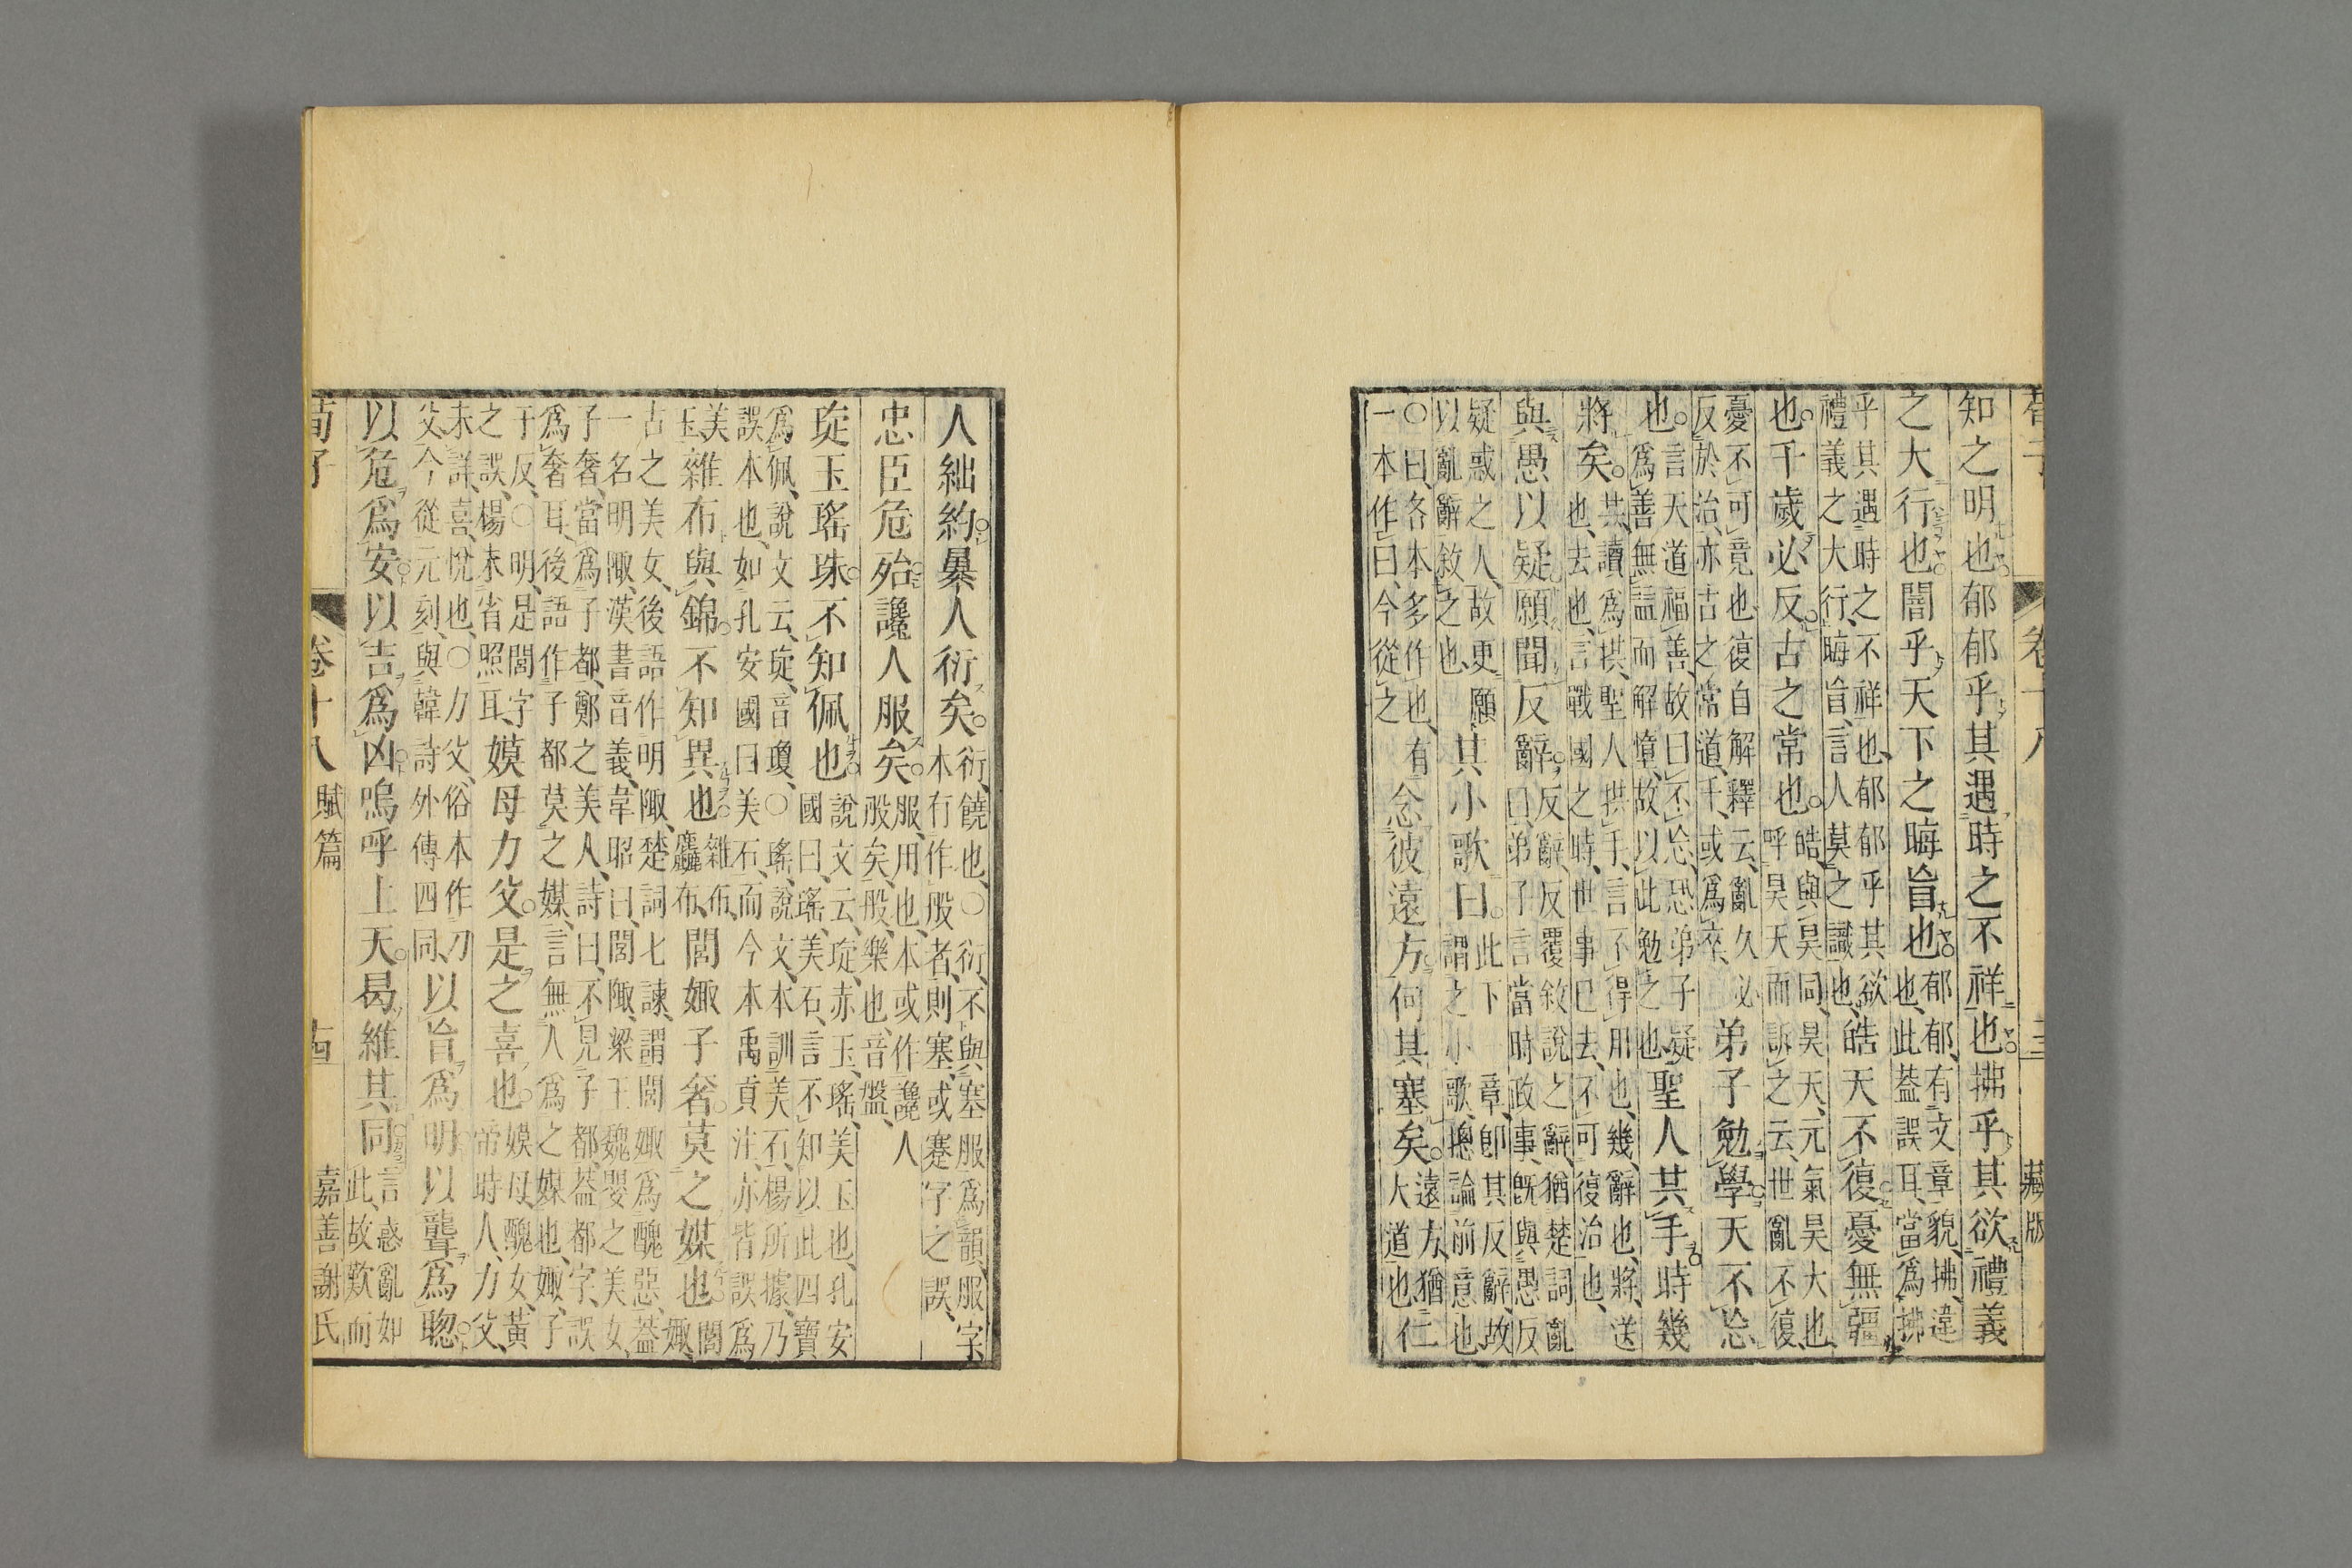 荀子 卷十八 三 藏版
知之明也郁郁乎其遇時之不祥也拂乎其欲禮義
之大行也闇乎天下之晦盲也
郁郁、有文章貌、拂、違
也、此蓋誤耳、當爲拂
乎其遇時之不祥也、郁郁乎其欲
禮義之大行、晦盲、言人莫之識也、
皓天不復憂無疆
也。千歲必反。古之常也。
皓與昊同、昊天、元氣昊大也、
呼昊天而訴之云世亂不復
憂不可竟也、復自解釋云、亂久必
反於治、亦古之常道、千、或爲卒、
弟子勉學天不忘
也。
言天道福善、故曰不忘、恐弟子疑
爲善無益而解惰、故以此勉之也、
聖人共手時幾
將矣。
共、讀爲拱、聖人拱手、言不得用也、幾、辭也、將、送
也、去也、言戰國之時、世事已去、不可復治也、
與愚以疑願聞反辭。
反辭、反覆敘說之辭、猶楚詞亂
曰、弟子言當時政事、旣與愚反
疑惑之人、故更願
以亂辭敘之也、
其小歌曰。
此下一章、卽其反辭、故
謂之小歌、總論前意也
○曰、各本多作也、有
一本作曰、今從之
念彼遠方何其塞矣。
遠方、猶
大道也
仁
人絀約暴人衍矣。
衍、饒也、○衍、不與塞服爲韻、服字
本有作般者、則塞、或蹇字之誤、
忠臣危殆讒人服矣。
服、用也、本或作讒人
般矣、般、樂也、音盤、
琁玉瑤珠不知佩也
說文云、琁、赤玉、瑤、美玉也、孔安
國曰、瑤、美石、言不知以此四寶
爲佩、說文云、琁、音瓊、○瑤、說文、本訓美石、楊所據、乃
誤本也、如孔安國曰美石、而今本禹貢注、亦皆誤爲
美
玉
雜布與錦不知異也
雜布、
麤布、
閭娵子奢莫之媒也
閭
娵、
古之美女、後語作明陬、楚詞七諫、謂閭娵爲醜惡、蓋
一名明陬、漢書音義、韋昭曰、閭陬、梁王魏嬰之美女、
子奢、當爲子都、鄭之美人、詩曰、不見子都、蓋都字、誤
爲奢耳、後語作子都莫之媒、言無人爲之媒也、娵、子
于反、○明、是閭字
之誤、楊未省照耳、
嫫母力父。是之喜也。
嫫母、醜女、黃
帝時人、力父、
未詳、喜、悅也、○力父、俗本作刀
父今從元刻、與韓詩外傳四同、
以盲爲明以聾爲聰
以危爲安以吉爲凶嗚呼上天。曷維其同
言惑亂如
此、故歎而
荀子 卷十八 賦篇 十四 嘉善謝氏